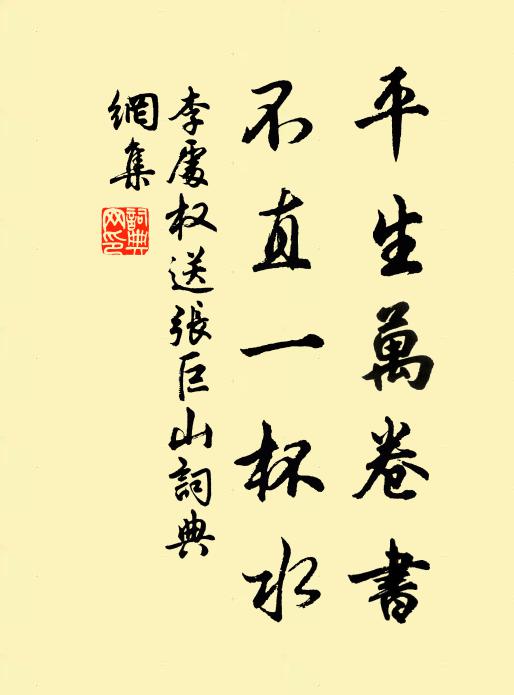 平生萬卷書
不直一杯水
李處权送張巨山詞典
網集
詞典
网印